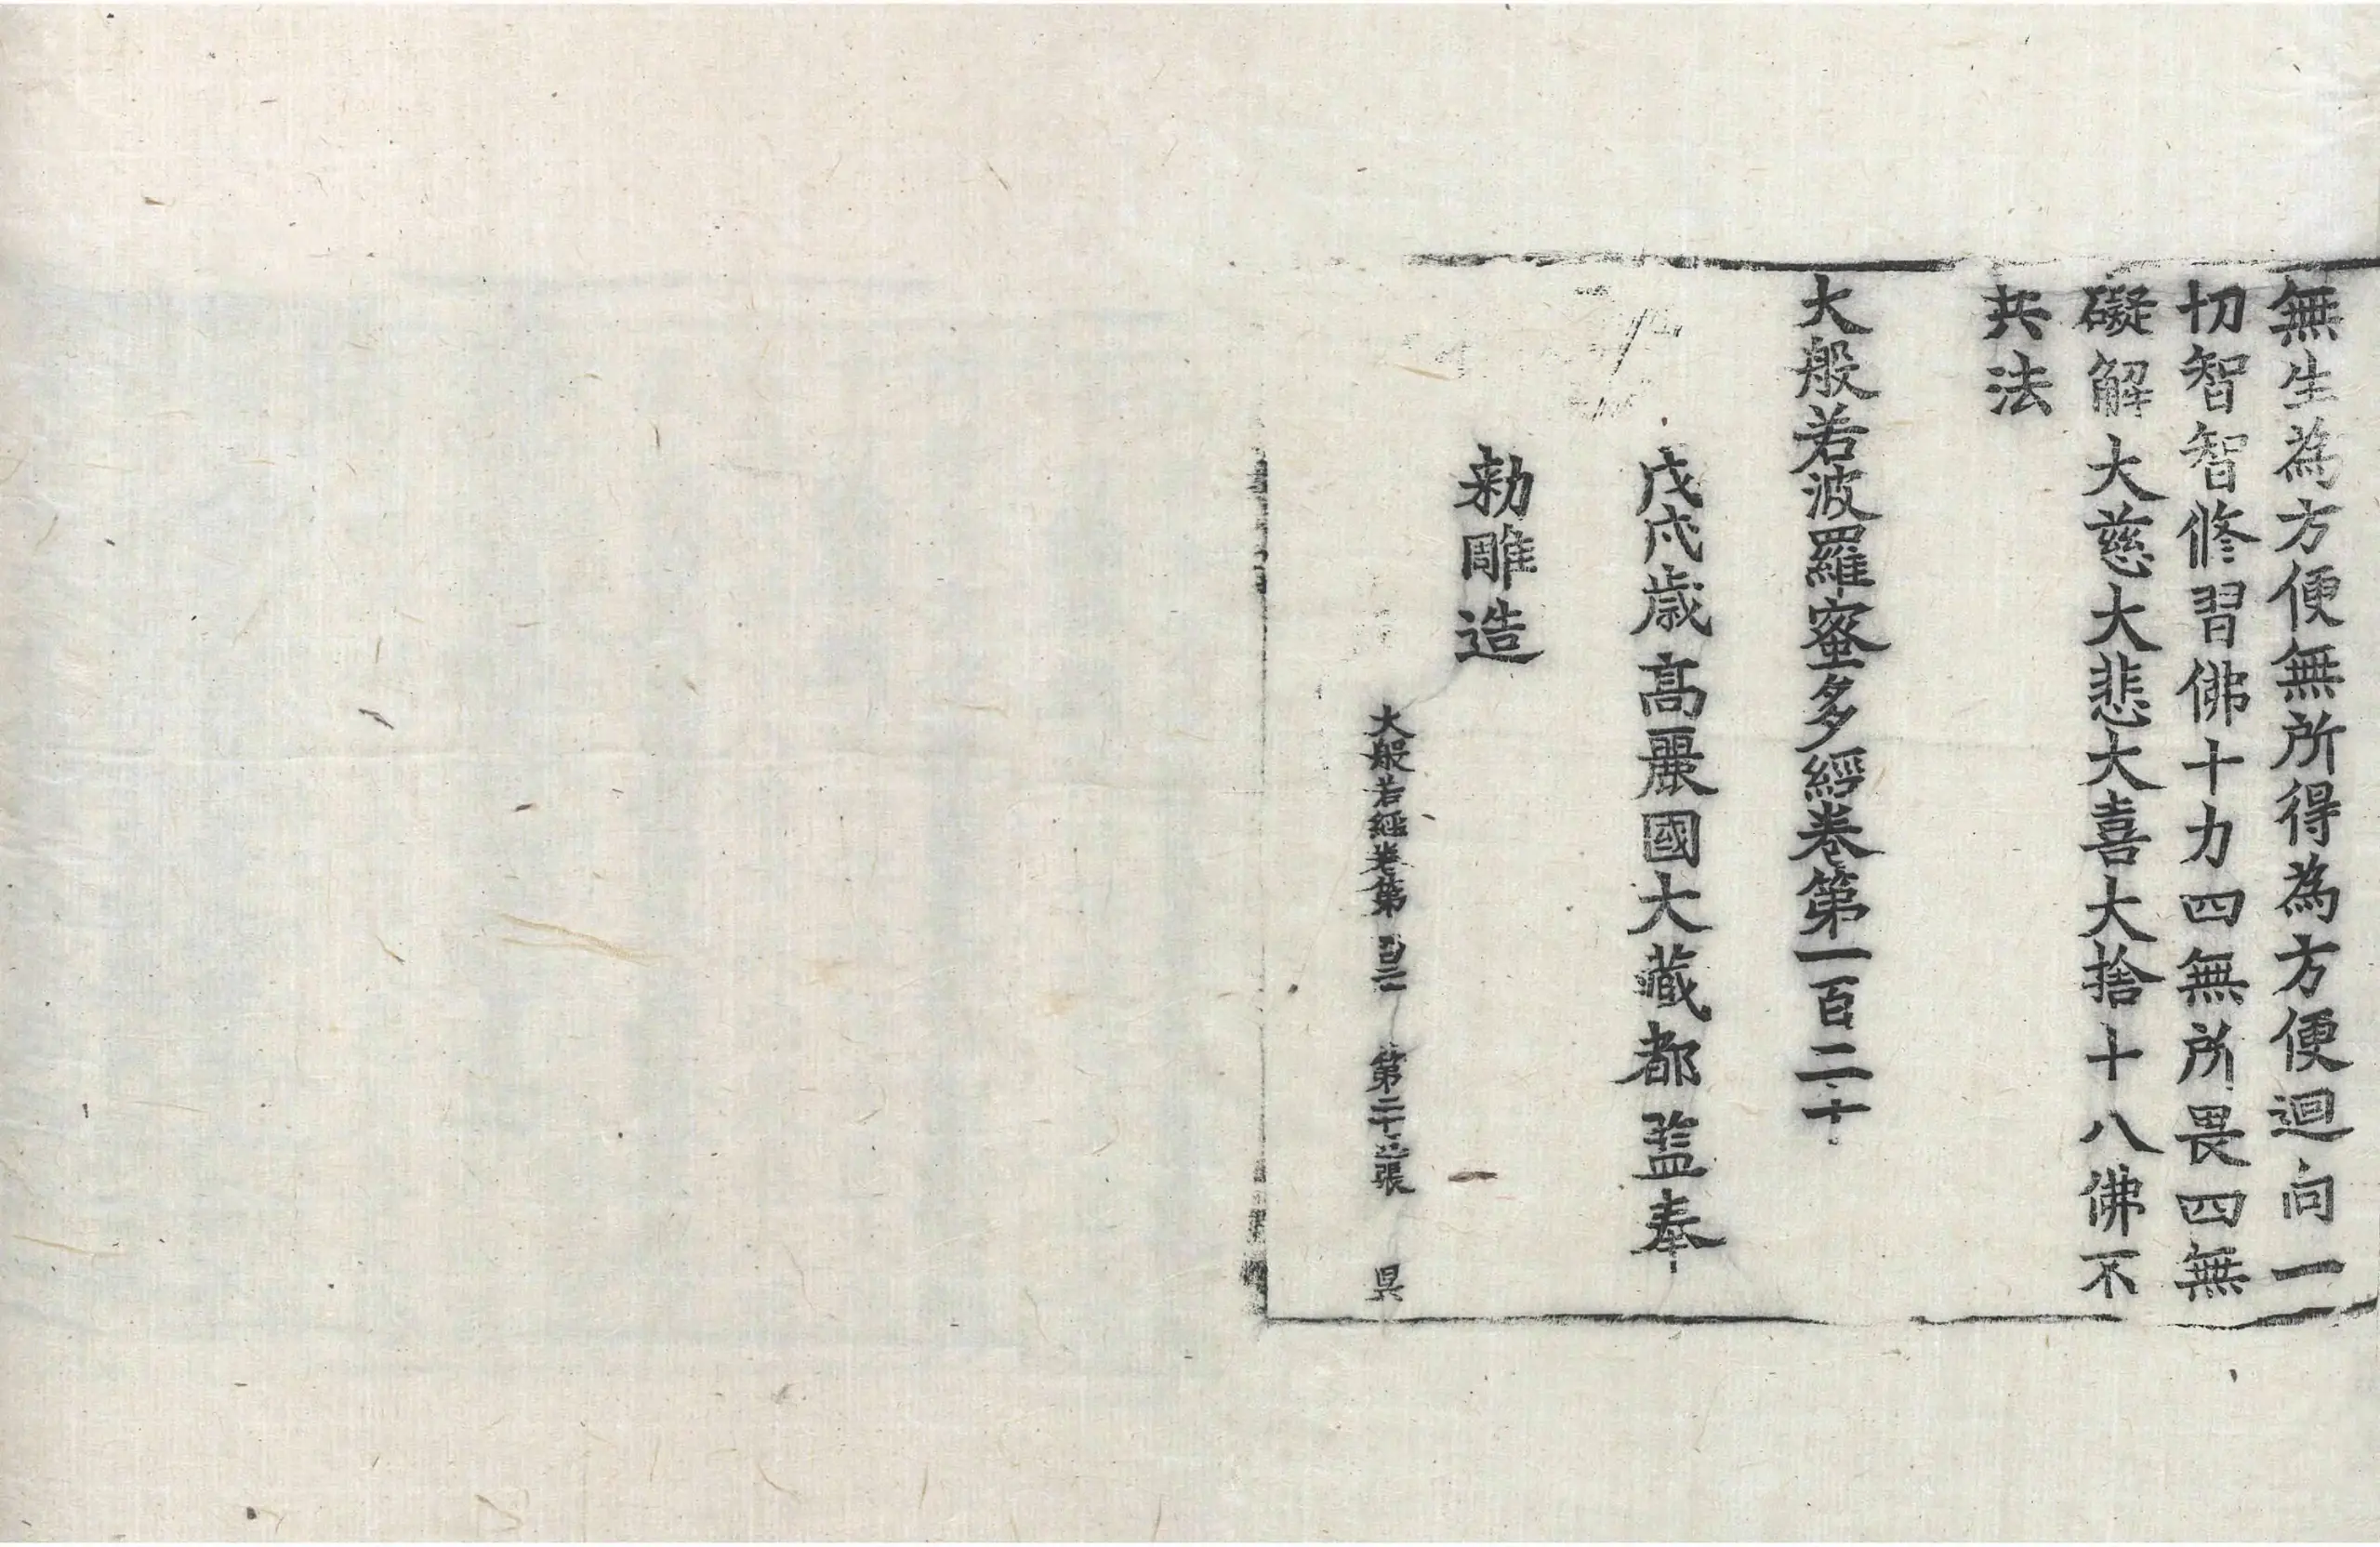 無生為方便無所得為方便迴向一
切智智修習佛十力四無所畏四無
礙解大慈大悲大喜大捨十八佛不
共法
大般若波羅蜜多經卷第一百二十
戊戌歲高麗國大藏都監奉
勑雕造
大般若經卷第百二十 第二十三張 昃